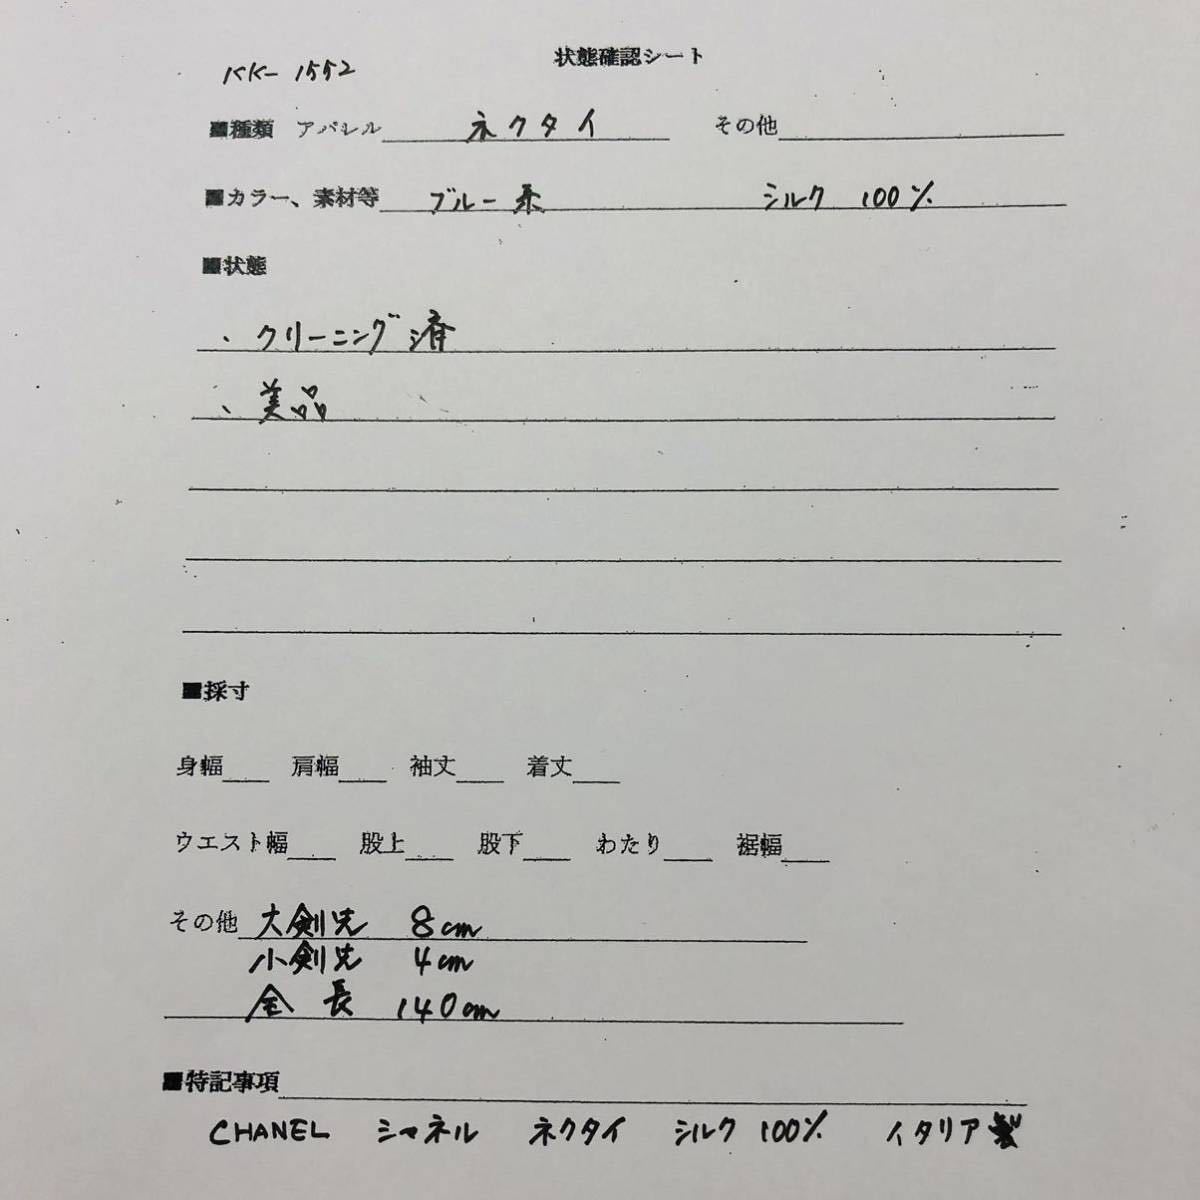 状態確認シート
KK-1552
■種類 アパレル ネクタイ その他
■カラー、素材等 ブルー系 シルク 100%
■状態
、クリーニング済
、美品
■採寸
身幅 肩幅 袖丈 着丈
ウエスト幅 股上 股下 わたり 裾幅
その他 大剣先 8cm
小剣先 4cm
全長 140cm
■特記事項
CHANEL シャネル ネクタイ シルク 100% イタリア製